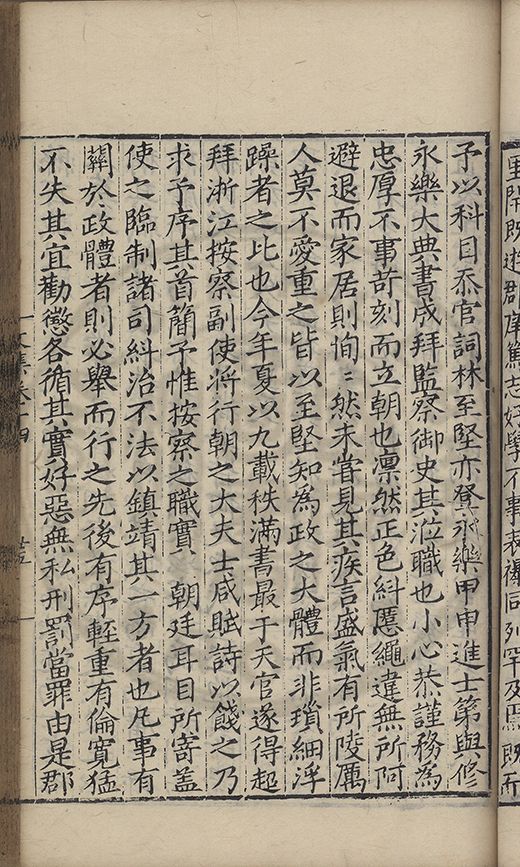 里閈既遊郡庠篤志好學不事表襮同列罕及焉既而
予以科目忝官詞林至堅亦登永樂甲申進士第與修
永樂大典書成拜監察御史其涖職也小心恭謹務為
忠厚不事苛刻而立朝也凛然正色糾慝繩違無所阿
避退而家居則恂〻然未甞見其疾言盛氣有所陵厲
人莫不愛重之皆以至堅知為政之大體而非瑣細浮
躁者之比也今年夏以九載秩滿書最于天官遂得超
拜浙江按察副使將行朝之大夫士咸賦詩以餞之乃
求予序其首簡予惟按察之職實　朝廷耳目所寄蓋
使之臨制諸司糾治不法以鎮靖其一方者也凡事有
關於政體者則必舉而行之先後有序輕重有倫寬猛
不失其宜勸懲各循其實好惡無私刑罰當罪由是郡
文集卷十四